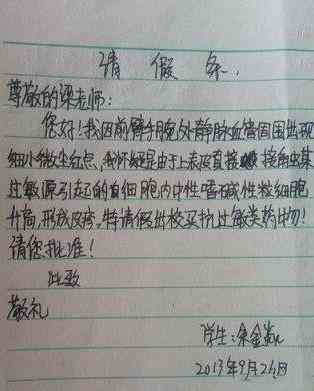 请 假 条.
尊敬的梁老师:
您好!我因前臂生腕处静脉血管周围出现
细小微尘红点,我怀疑是由于上表皮直接接触某
过敏源引起的白细胞内中性嗜碱性粒细胞
升高,形成皮疹,特请假出校买抗过敏类药物!
请您批准!
此致
敬礼
学生:余金
2013年9月26日